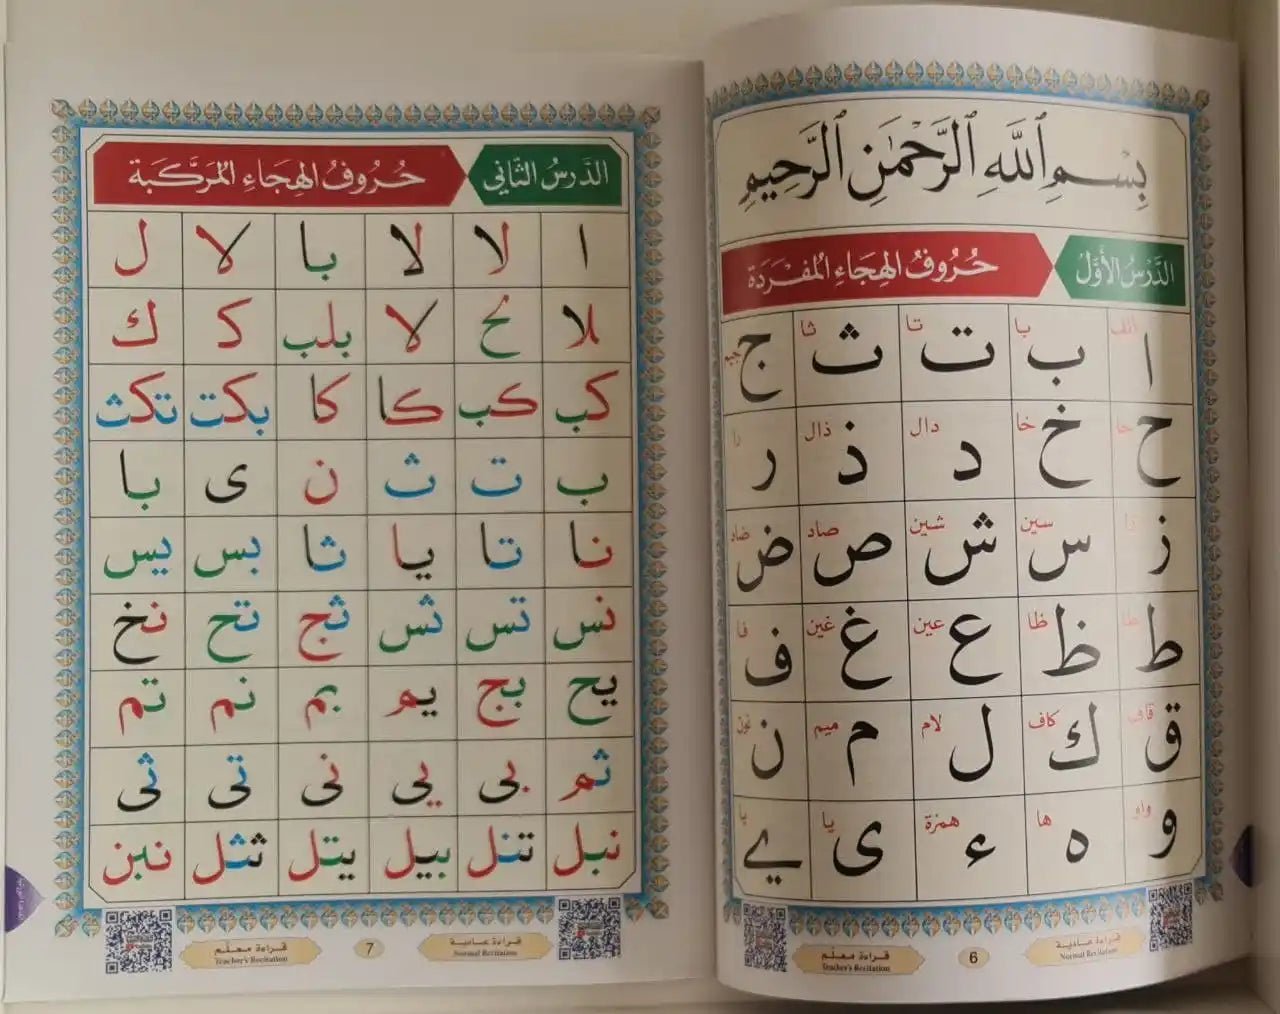 بِسْمِ ٱللَّهِ ٱلرَّحْمَٰنِ ٱلرَّحِيمِ
الدَّرْسُ الأَوَّلُ حُرُوفُ الهِجَاءِ المُفْرَدَة
ا ألف ب با ت تا ث ثا ج جيم
ح حا خ خا د دال ذ ذال ر را
ز زا س سين ش شين ص صاد ض ضاد
ط طا ظ ظا ع عين غ غين ف فا
ق قاف ك كاف ل لام م ميم ن نون
و واو ه ها ء همزة ى يا ے يا
قراءة عادية
Normal Recitation
6
قراءة معلّم
Teacher's Recitation
الدَّرْسُ الثَّانِي حُرُوفُ الهِجَاءِ المُرَكَّبَة
ا لا لا با لا ل
لا بلب كـ ك
كب كب كا كا بكت تكث
ب ت ث ن ى با
نا تا يا ثا بس يس
نس تس ثس ثج تح نخ
يح بج يم بم نم تم
ثم بى يي نى تى ثى
نبل تنل بيل يتل ثثل نبن
قراءة عادية
Normal Recitation
7
قراءة معلّم
Teacher's Recitation